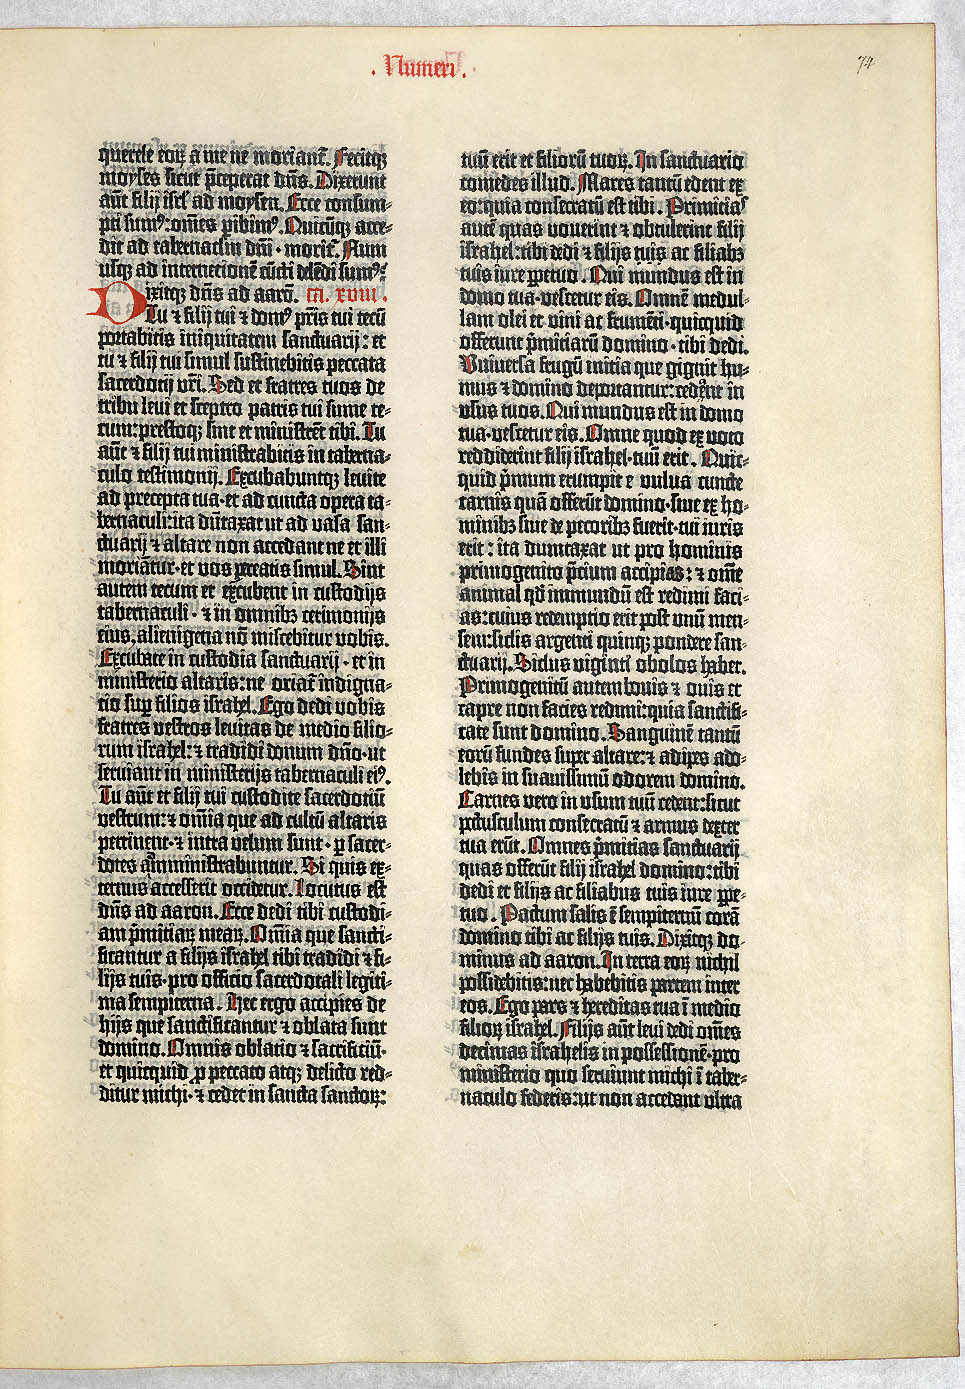 . Numeri .
74
querele eoꝝ a me ne moriant᷑. Fecitqꝫ
moyses sicut p̄ceperat dn̄s. Dixerunt
aūt filij isrl̄ ad moysen. Ecce consum-
pti sumꝰ: om̄es ꝑibimꝰ. Quicūqꝫ acce-
dit ad tabernaclm̄ dn̄i · morit᷑. Num
usqꝫ ad internetionē cūcti delēdi sumꝰ:
Dixitqꝫ dn̄s ad aarō. ca. xviii.
Tu ⁊ filij tui ⁊ domꝰ pr̄is tui tecū
portabitis iniquitatem sanctuarij: et
tu ⁊ filij tui simul sustinebitis peccata
sacerdotij vr̄i. Sed et fratres tuos de
tribu leui et sceptro patris tui sume te-
cum: prestoqꝫ sint et ministrēt tibi. Tu
aūt ⁊ filij tui ministrabitis in taberna-
culo testimonij. Excubabuntqꝫ leuite
ad precepta tua · et ad cuncta opera ta-
bernaculi: ita dūtaxat ut ad vasa san-
ctuarij ⁊ altare non accedant ne et illi
moriātur · et vos ꝑeatis simul. Sint
autem tecum et excubent in custodijs
tabernaculi · ⁊ in omnibꝫ cerimonijs
eius, alienigena nō miscebitur vobis.
Excubate in custodia sanctuarij · et in
ministerio altaris: ne oriat᷑ indigna-
tio suꝑ filios israhel. Ego dedi vobis
fratres vestros leuitas de medio filio-
rum israhel: ⁊ tradidi donum dn̄o · ut
seruiant in ministerijs tabernaculi eiꝰ.
Tu aūt et filij tui custodite sacerdotiū
vestrum: ⁊ om̄ia que ad cultū altaris
pertinent · ⁊ intra velum sunt · ꝑ sacer-
dotes amministrabuntur. Si quis ex-
ternus accesserit occidetur. Locutus est
dn̄s ad aaron. Ecce dedi tibi custodi-
am p̄mitiaꝝ meaꝝ. Om̄ia que sancti-
ficantur a filijs israhel tibi tradidi ⁊ fi-
lijs tuis · pro officio sacerdotali legiti-
ma sempiterna. Hec ergo accipies de
hijs que sanctificantur ⁊ oblata sunt
domino. Omnis oblatio ⁊ sacrificiū ·
et quicquid ꝓ peccato atqꝫ delicto red-
ditur michi · ⁊ cedet in sancta sanctoꝝ:
tuū erit et filiorū tuoꝝ. In sanctuario
comedes illud. Mares tantū edent ex
eo: quia consecratū est tibi. Primicias
autē quas vouerint ⁊ obtulerint filij
israhel: tibi dedi ⁊ filijs tuis ac filiabꝫ
tuis iure ꝑpetuo. Qui mundus est in
domo tua · vescetur eis. Omnē medul-
lam olei et vini ac frumēti · quicquid
offerunt p̄mitiarū domino · tibi dedi.
Vniuersa frugū initia que gignit hu-
mus ⁊ domino deportantur: cedēt in
vsus tuos. Qui mundus est in domo
tua · vescetur eis. Omne quod ex voto
reddiderint filij israhel · tuū erit. Quic-
quid p̄mum erumpit e vulua cuncte
carnis quā offerūt domino · siue ex ho-
minibꝫ siue de pecoribꝫ fuerit · tui iuris
erit: ita dumtaxat ut pro hominis
primogenito p̄cium accipias: ⁊ om̄e
animal qd̄ immundū est redimi faci-
as: cuius redemptio erit post vnū men-
sem: siclis argenti quinqꝫ pondere san-
ctuarij. Siclus viginti obolos habet.
Primogenitū autem bouis ⁊ ouis et
capre non facies redimi: quia sanctifi-
cate sunt domino. Sanguinē tantū
eorū fundes super altare: ⁊ adipes ado-
lebis in suauissimū odorem domino.
Carnes vero in vsum tuū cedent: sicut
pectusculum consecratū ⁊ armus dexter
tua erūt. Omnes p̄mitias sanctuarij
quas offerūt filij israhel domino: tibi
dedi et filijs ac filiabus tuis iure ꝑpe-
tuo. Pactum salis ē sempiternū corā
domino tibi ac filijs tuis. Dixitqꝫ do-
minus ad aaron. In terra eoꝝ nichil
possidebitis: nec habebitis partem inter
eos. Ego pars ⁊ hereditas tua ī medio
filioꝝ israhel. Filijs aūt leui dedi om̄es
decimas israhelis in possessionē · pro
ministerio quo seruiunt michi ī taber-
naculo federis: ut non accedant ultra